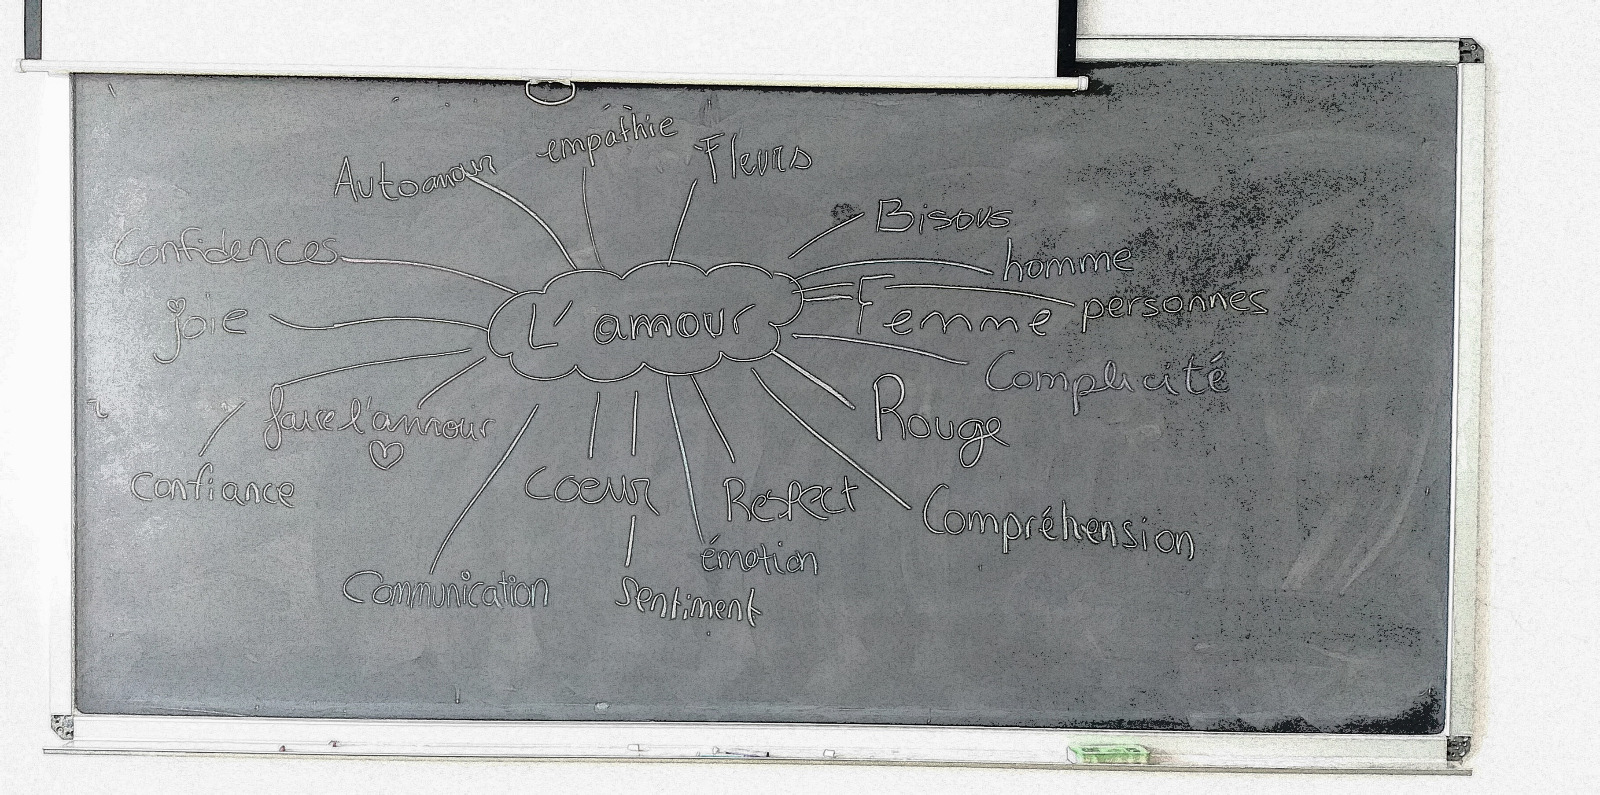 empathie
Fleurs
Autoamour
Bisous
Confidences
homme
personnes
joie
L'amour
Femme
Complicité
faire l'amour
Rouge
Confiance
Coeur
Respect
Compréhension
émotion
Communication
Sentiment